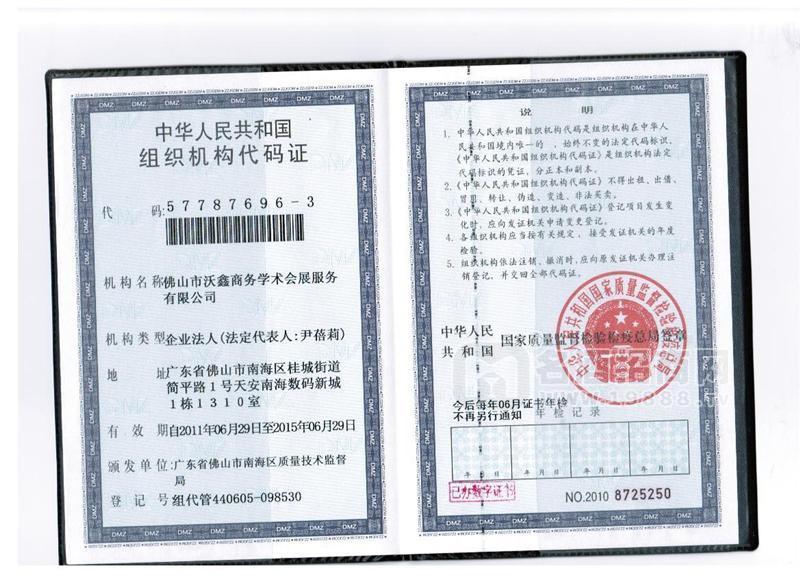 中华人民共和国
组织机构代码证
代 码:57787696-3
机构名称佛山市沃鑫商务学术会展服务
有限公司
机构类型企业法人(法定代表人:尹蓓莉)
地 址 广东省佛山市南海区桂城街道
简平路1号天安南海数码新城
1栋1310室
有 效 期自2011年06月29日至2015年06月29日
颁发单位:广东省佛山市南海区质量技术监督
局
登 记 号组代管440605-098530
说 明
1. 中华人民共和国组织机构代码是组织机构在中华人
民共和国境内唯一的、始终不变的法定代码标识,
《中华人民共和国组织机构代码证》是组织机构法定
代码标识的凭证,分正本和副本。
2.《中华人民共和国组织机构代码证》不得出租、出借、
冒用、转让、伪造、变造、非法买卖。
3.《中华人民共和国组织机构代码证》登记项目发生变
化时,应向发证机关申请变更登记。
4. 各组织机构应当按有关规定,接受发证机关的年度
检验。
5. 组织机构依法注销、撤消时,应向原发证机关办理注
销登记,并交回全部代码证。
中华人民
共和国 国家质量监督检验检疫总局签章
中华人民共和国国家质量监督检验检疫总局
今后每年06月证书年检
不再另行通知 年检记录
年 月 日 年 月 日 年 月 日 年 月 日
已办数字证书
NO.2010 8725250